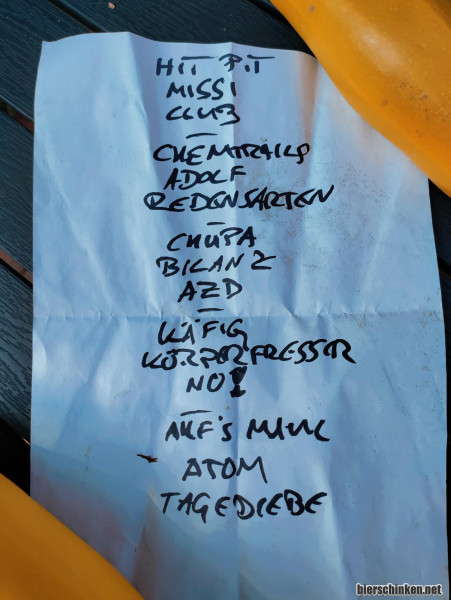 HIT PIT
MISSI
CLUB
—
CHEMTRAILS
ADOLF
REDENSARTEN
—
CHUPA
BILANZ
AZD
—
KÄFIG
KÖRPERFRESSER
NO!
—
AUF'S MAUL
ATOM
TAGEDIEBE
bierschinken.net